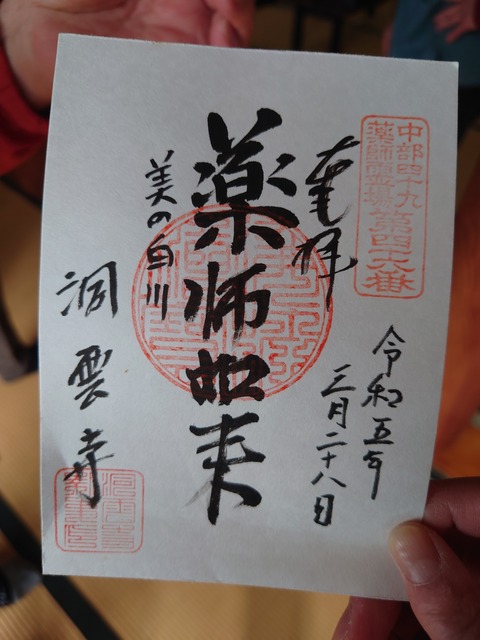 中部四十九
薬師霊場第四十八番
奉拝
令和五年
三月二十八日
薬師如来
美の白川
洞雲寺